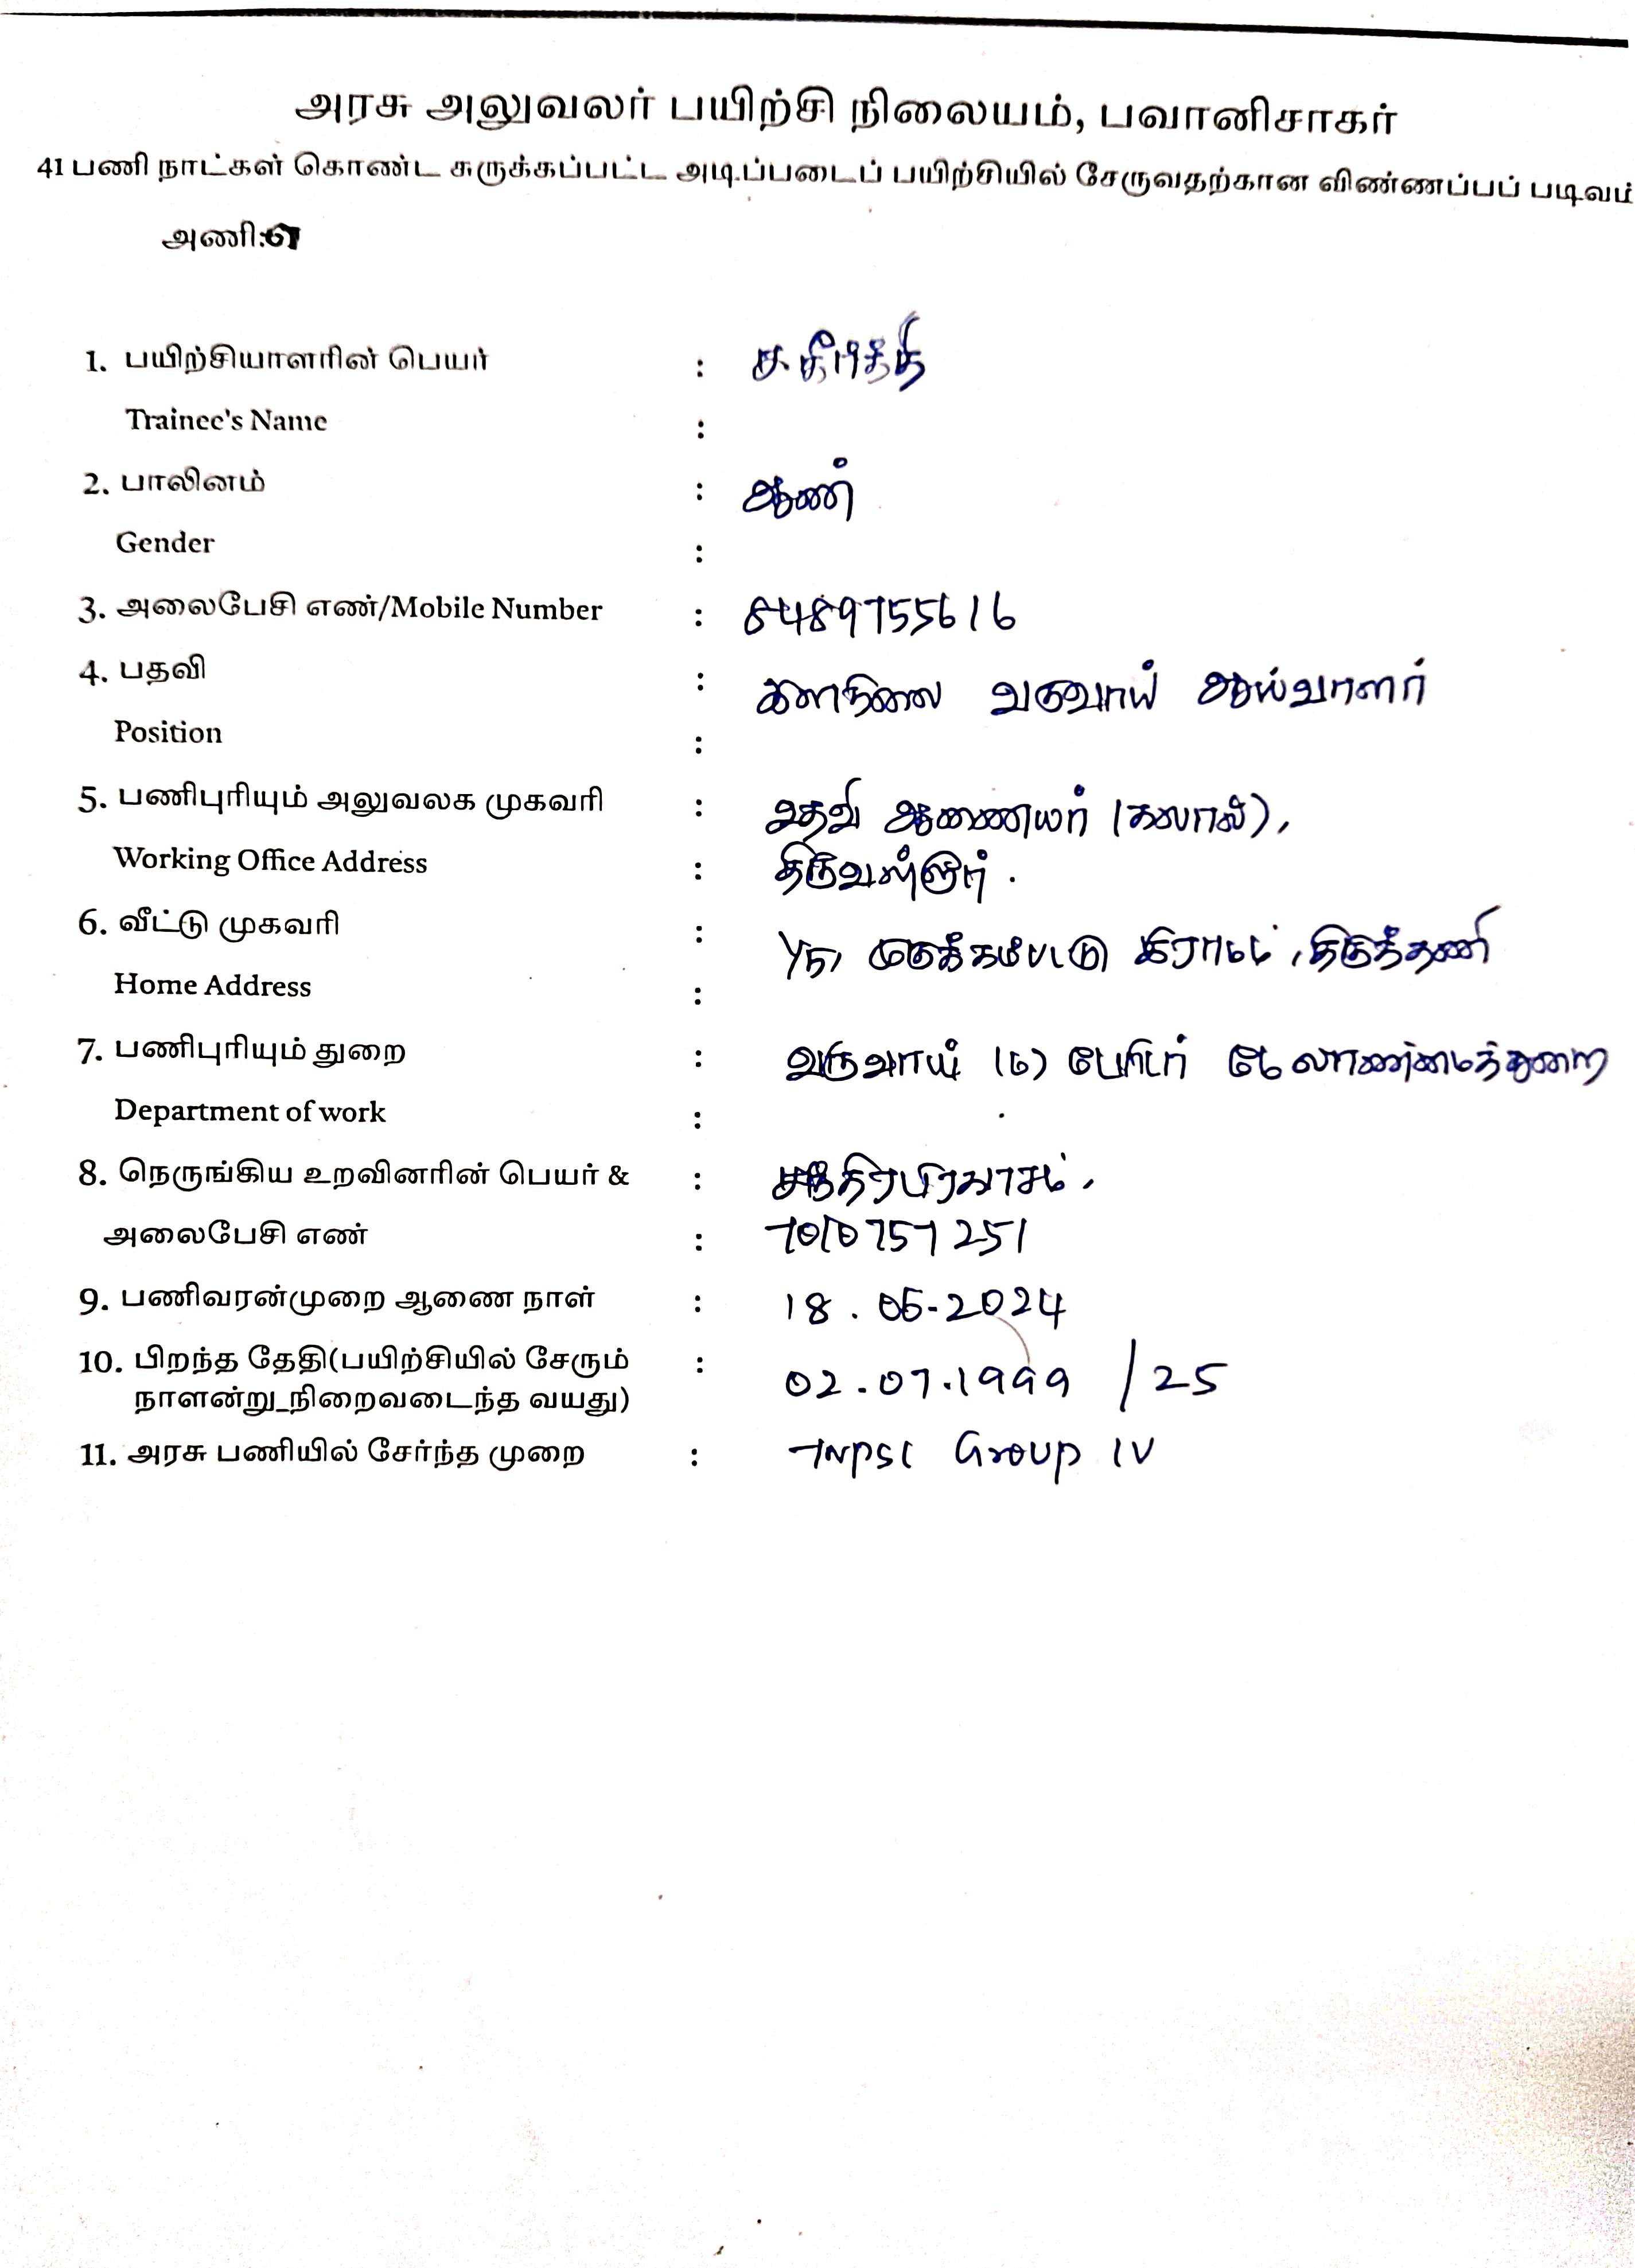 அரசு அலுவலர் பயிற்சி நிலையம், பவானிசாகர்
41 பணி நாட்கள் கொண்ட சுருக்கப்பட்ட அடிப்படைப் பயிற்சியில் சேருவதற்கான விண்ணப்பப் படிவம்
அணி:எ
1. பயிற்சியாளரின் பெயர் : ச. கீர்த்தி
Trainee's Name :
2. பாலினம் : ஆண்
Gender :
3. அலைபேசி எண்/Mobile Number : 8489755616
4. பதவி : இளநிலை வருவாய் ஆய்வாளர்
Position :
5. பணிபுரியும் அலுவலக முகவரி : உதவி ஆணையர் (கலால்),
Working Office Address : திருவள்ளூர்.
6. வீட்டு முகவரி : கிராமம், திருத்தணி
Home Address :
7. பணிபுரியும் துறை : வருவாய் (ம) பேரிடர் மேலாண்மைத்துறை
Department of work :
8. நெருங்கிய உறவினரின் பெயர் &
அலைபேசி எண் : 7010757251
9. பணிவரன்முறை ஆணை நாள் : 18.05-2024
10. பிறந்த தேதி(பயிற்சியில் சேரும் : 02.07.1999 / 25
நாளன்று_நிறைவடைந்த வயது)
11. அரசு பணியில் சேர்ந்த முறை : TNPSC Group IV